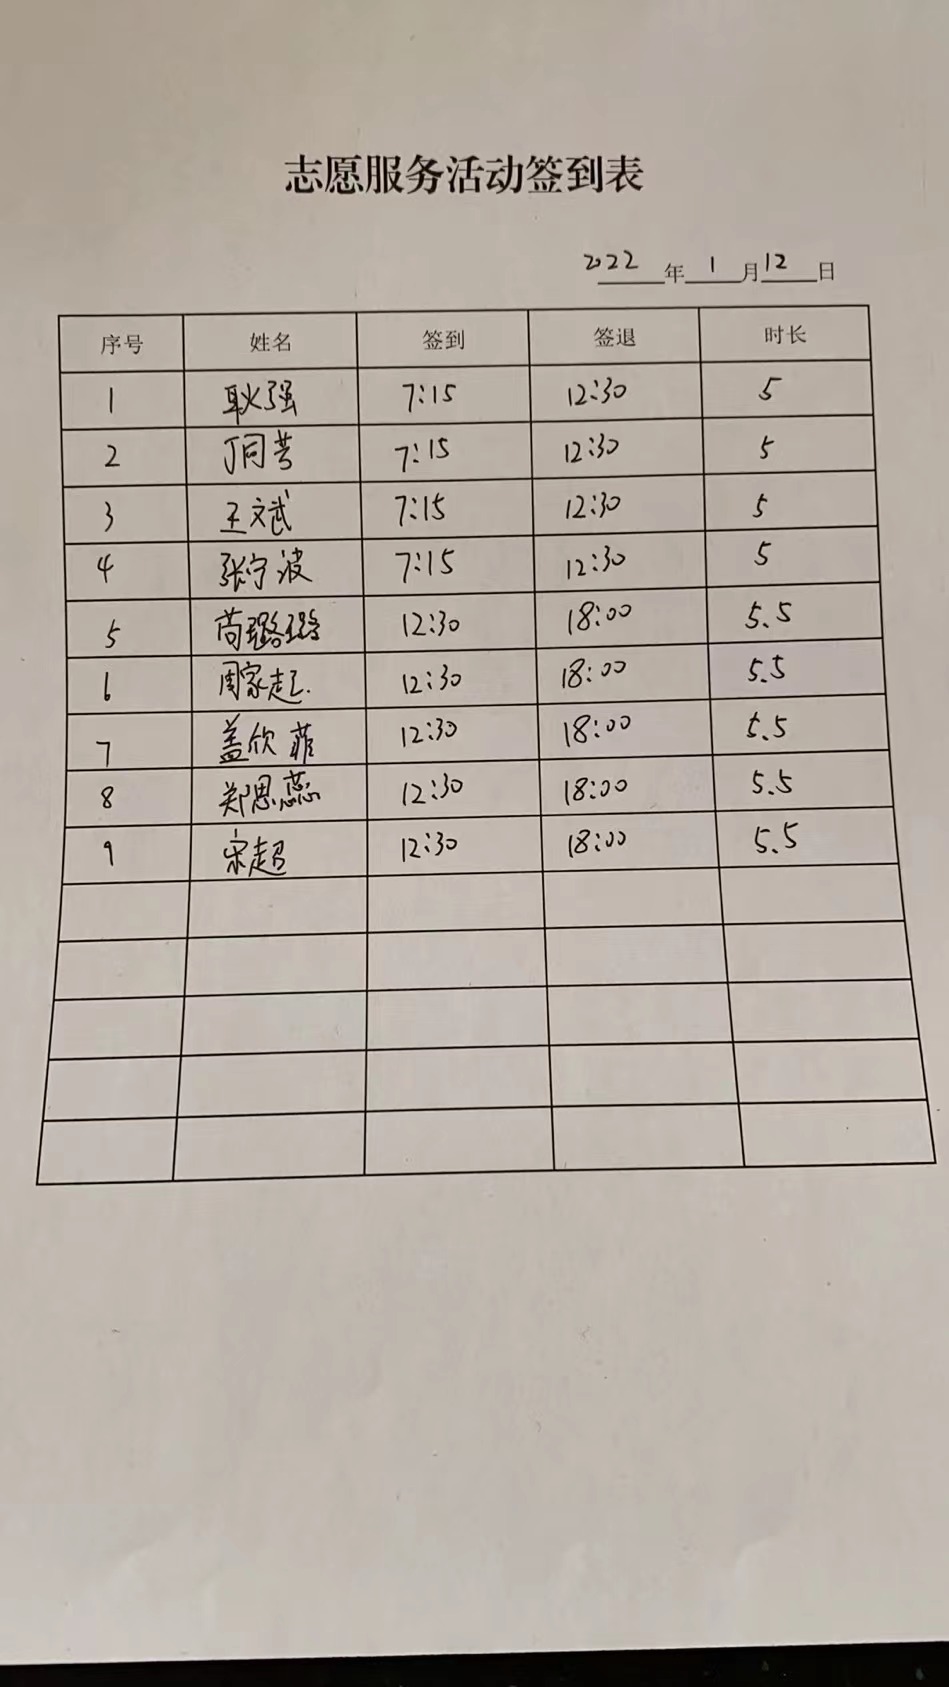 志愿服务活动签到表
2022年1月12日
序号 姓名 签到 签退 时长
1 耿强 7:15 12:30 5
2 丁同芳 7:15 12:30 5
3 王文斌 7:15 12:30 5
4 张宁波 7:15 12:30 5
5 苘璐璐 12:30 18:00 5.5
6 周家起 12:30 18:00 5.5
7 盖欣菲 12:30 18:00 5.5
8 郑思蕊 12:30 18:00 5.5
9 宋超 12:30 18:00 5.5